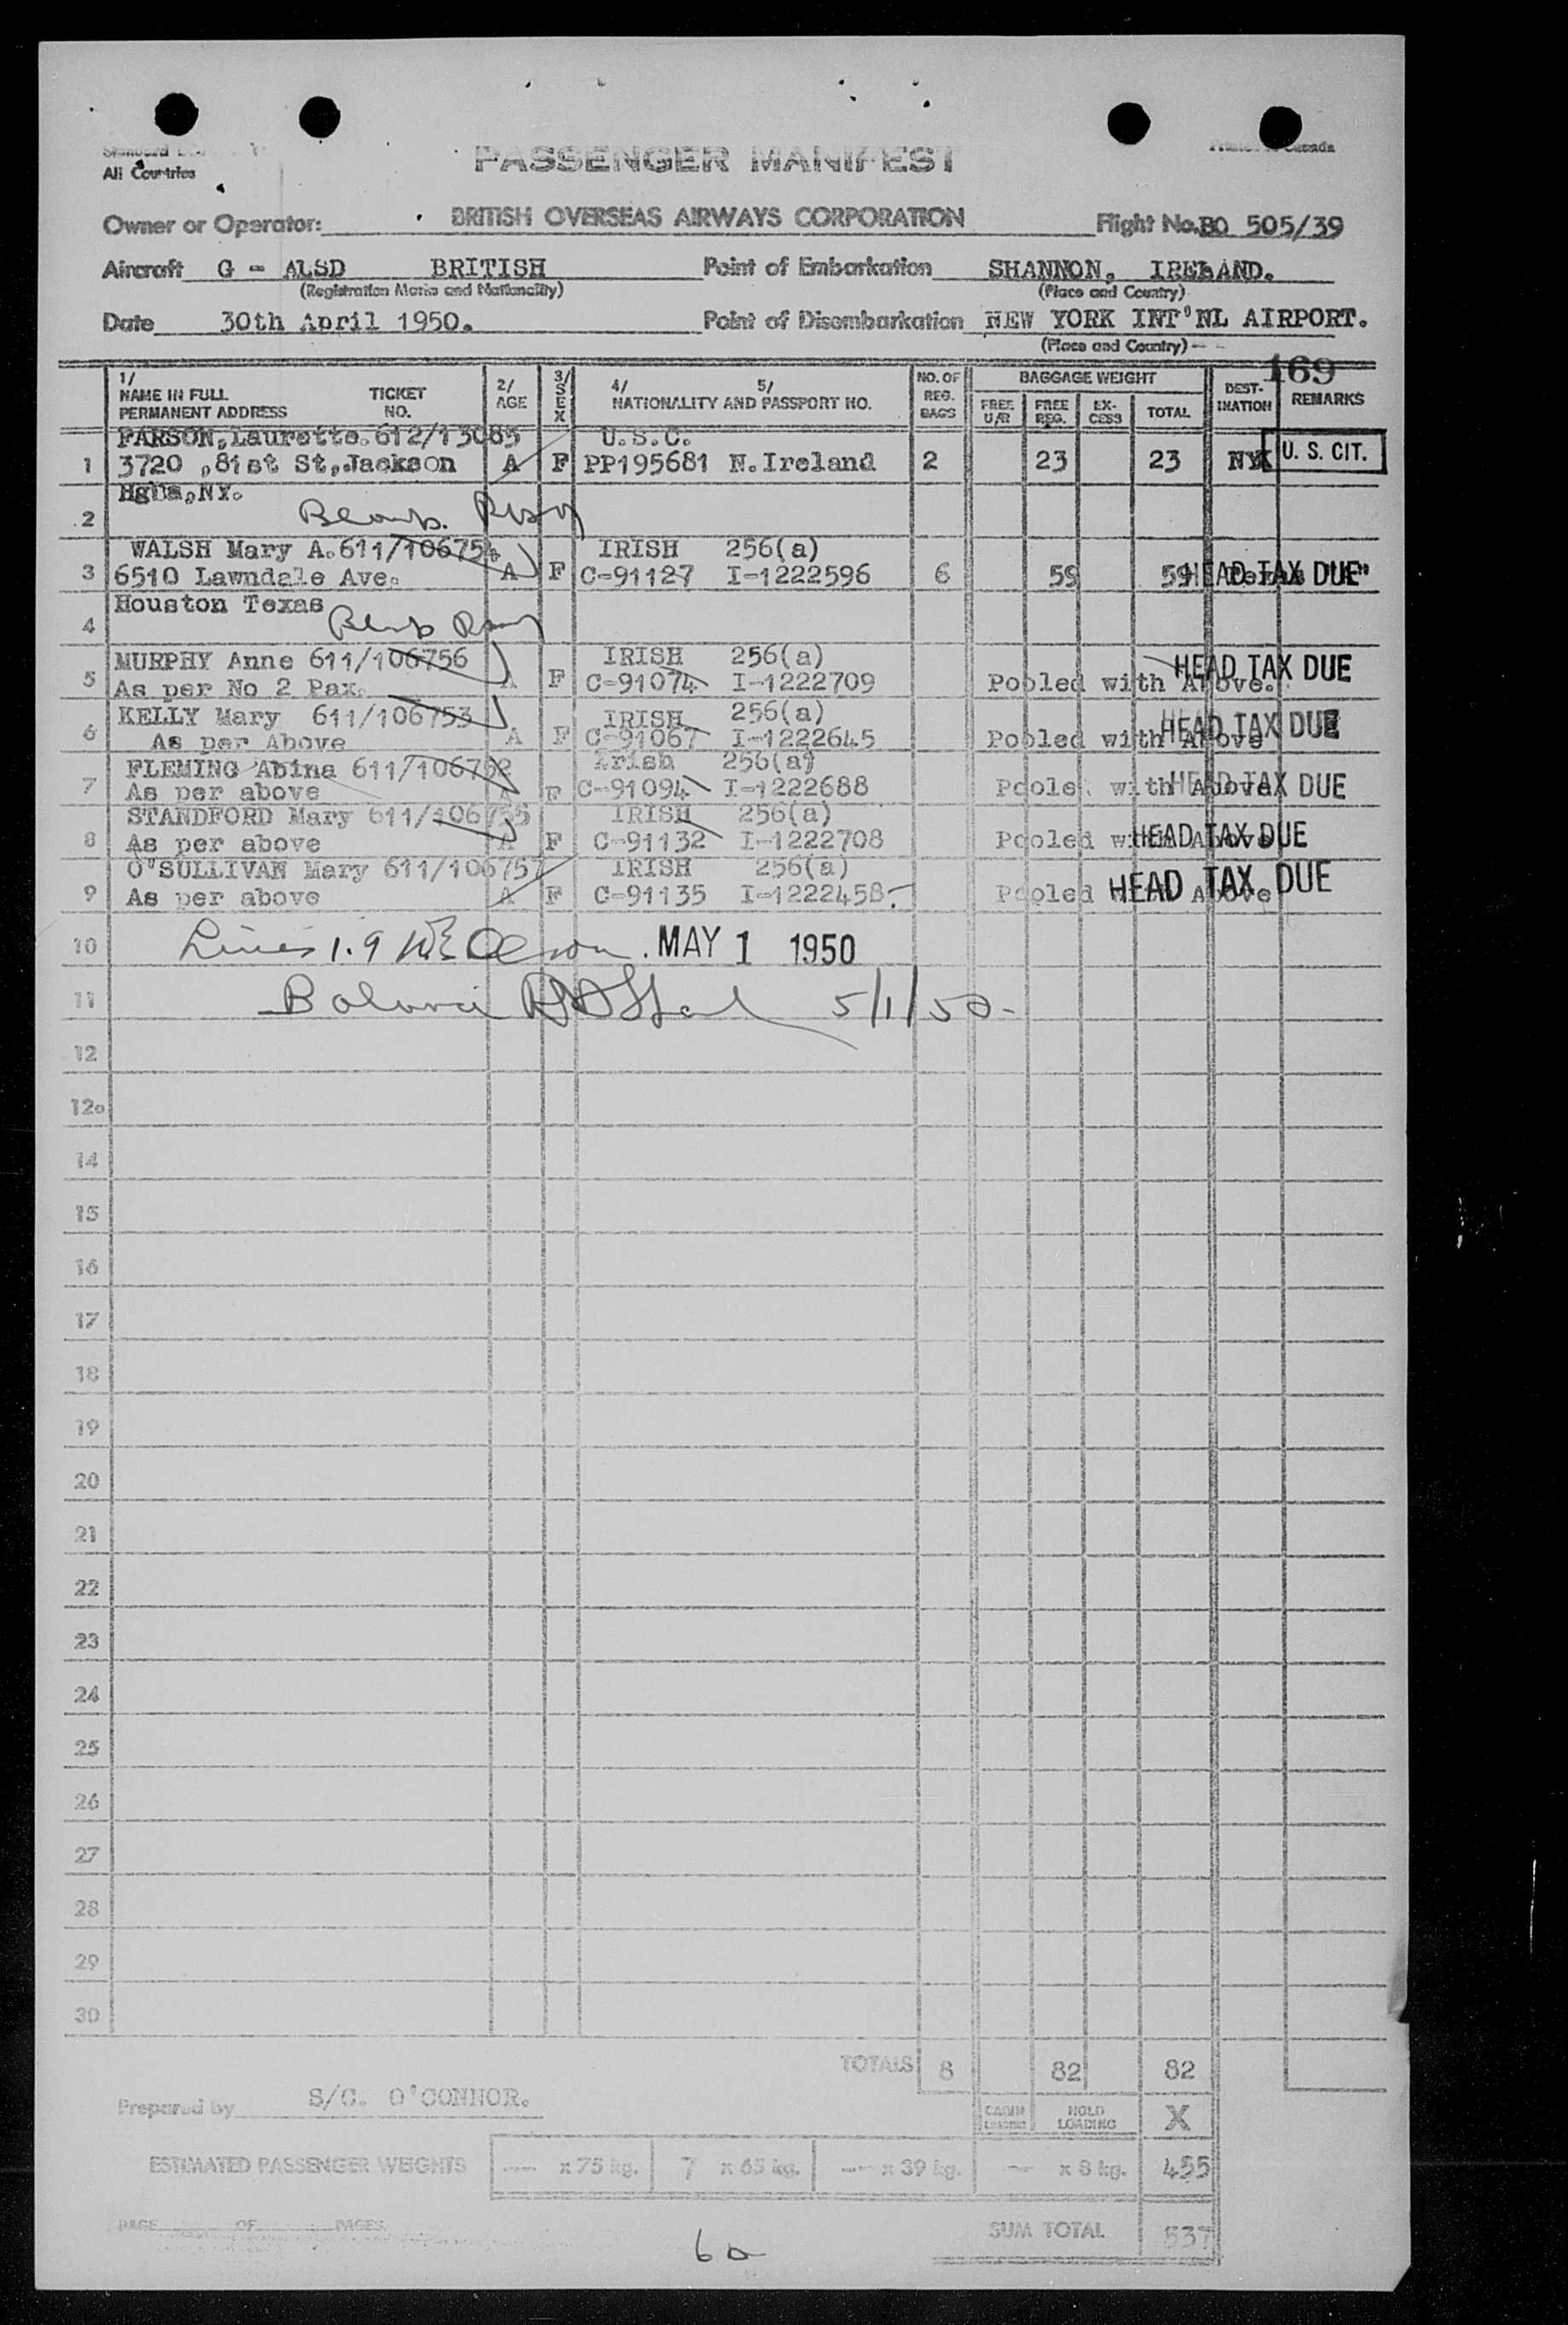 All Countries
PASSENGER MANIFEST
Owner or Operator: BRITISH OVERSEAS AIRWAYS CORPORATION Flight No. BO 505/39
Aircraft G - ALSD BRITISH Point of Embarkation SHANNON, IRELAND.
(Registration Marks and Nationality) (Place and Country)
Date 30th April 1950. Point of Disembarkation NEW YORK INT'NL AIRPORT.
(Place and Country)
169
1/ NAME IN FULL PERMANENT ADDRESS TICKET NO. 2/ AGE 3/ SEX 4/ 5/ NATIONALITY AND PASSPORT NO. NO. OF REG. BAGS BAGGAGE WEIGHT FREE U/R FREE REG. EX-CESS TOTAL DEST-INATION REMARKS
PARSON, Laurette. 612/13085 U.S.C.
1 3720 ,81st St,.Jackson A F PP195681 N.Ireland 2 23 23 NYK U. S. CIT.
Hghs,NY.
2
WALSH Mary A. 611/106754 IRISH 256(a)
3 6510 Lawndale Ave. A F C-91127 I-1222596 6 59 59 HEAD TAX DUE
Houston Texas
4
MURPHY Anne 611/106756 IRISH 256(a)
5 As per No 2 Pax. A F C-91074 I-1222709 Pooled with Above. HEAD TAX DUE
KELLY Mary 611/106753 IRISH 256(a)
6 As per Above A F C-91067 I-1222645 Pooled with Above HEAD TAX DUE
FLEMING Abina 611/106752 Irish 256(a)
7 As per above A F C-91094 I-1222688 Pooled with Above HEAD TAX DUE
STANDFORD Mary 611/106755 IRISH 256(a)
8 As per above A F C-91132 I-1222708 Pooled with Above HEAD TAX DUE
O'SULLIVAN Mary 611/106757 IRISH 256(a)
9 As per above A F C-91135 I-1222458 Pooled with Above HEAD TAX DUE
10 Lines 1.9 MAY 1 1950
11 5/1/50-
12
12a
14
15
16
17
18
19
20
21
22
23
24
25
26
27
28
29
30
TOTALS 8 82 82
Prepared by S/C. O'CONNOR. CABIN LOADING HOLD LOADING X
ESTIMATED PASSENGER WEIGHTS -- x 75 kg. 7 x 65 kg. -- x 39 kg. -- x 8 kg. 455
PAGE OF PAGES SUM TOTAL 537
60